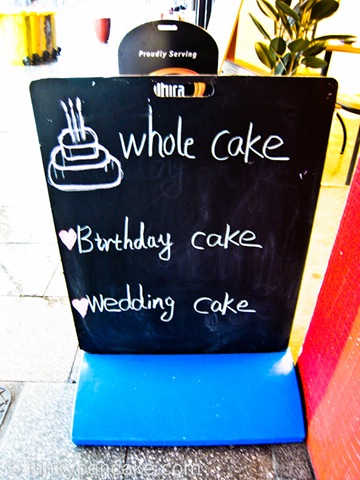 Proudly Serving
whole cake
Birthday cake
Wedding cake